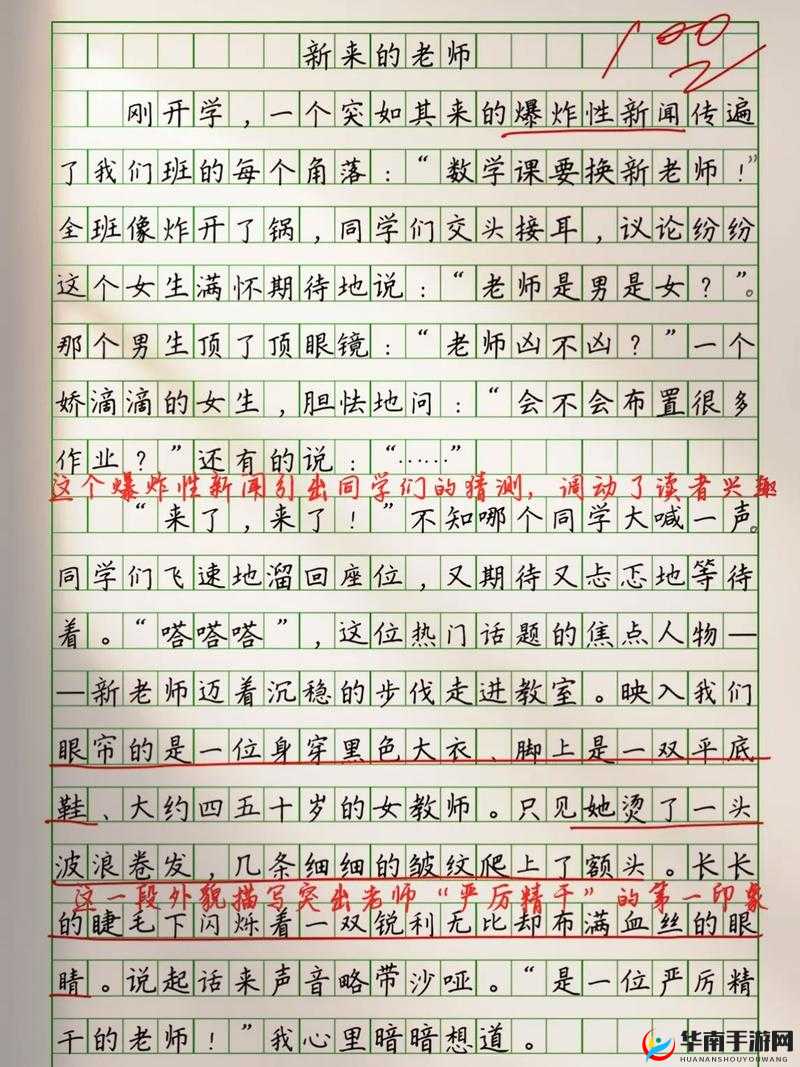 新来的老师
100
刚开学，一个突如其来的爆炸性新闻传遍
了我们班的每个角落：“数学课要换新老师！”
全班像炸开了锅，同学们交头接耳，议论纷纷
这个女生满怀期待地说：“老师是男是女？”。
那个男生顶了顶眼镜：“老师凶不凶？”一个
娇滴滴的女生，胆怯地问：“会不会布置很多
作业？”还有的说：“……”
这个爆炸性新闻引出同学们的猜测，调动了读者兴趣
“来了，来了！”不知哪个同学大喊一声。
同学们飞速地溜回座位，又期待又忐忑地等待
着。“嗒嗒嗒”，这位热门话题的焦点人物—
—新老师迈着沉稳的步伐走进教室。映入我们
眼帘的是一位身穿黑色大衣、脚上是一双平底
鞋、大约四五十岁的女教师。只见她烫了一头
波浪卷发，几条细细的皱纹爬上了额头。长长
这一段外貌描写突出老师“严厉精干”的第一印象
的睫毛下闪烁着一双锐利无比却布满血丝的眼
睛。说起话来声音略带沙哑。“是一位严厉精
干的老师！”我心里暗暗想道。
华南手游网
HUANANSHOUYOUWANG